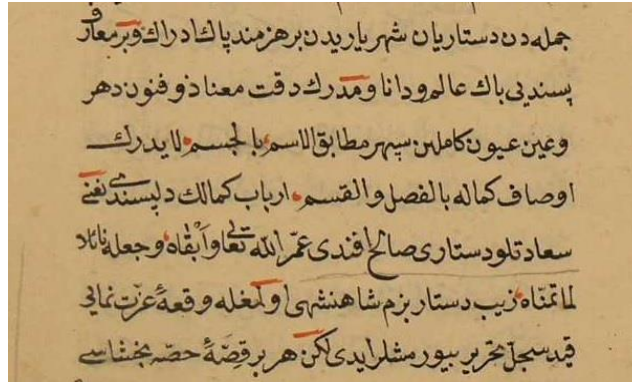 جمله دن دستاریان شهریاریدن برهنرمند پاك ادراك وبر معارف
پسند بی باك عالم ودانا ومدرك دقت معنا ذو فنون دهر
وعین عیون کاملین سپهر مطابق الاسم بالجسم لا یدرك
اوصاف کماله بالفصل والقسم ارباب کمالك دلپسندی یعنی
سعادتلو دستاری صالح افندی عمّر الله تعالی وابقاه وجعله نائلا
لما تمنّاه زیب دستار بزم شاهنشهی اولمغله وقعهٔ عزت نمایی
قید سجلّ تحریر بیورمشلر ایدی لکن هر بر قصّهٔ حصّه بخشاسی